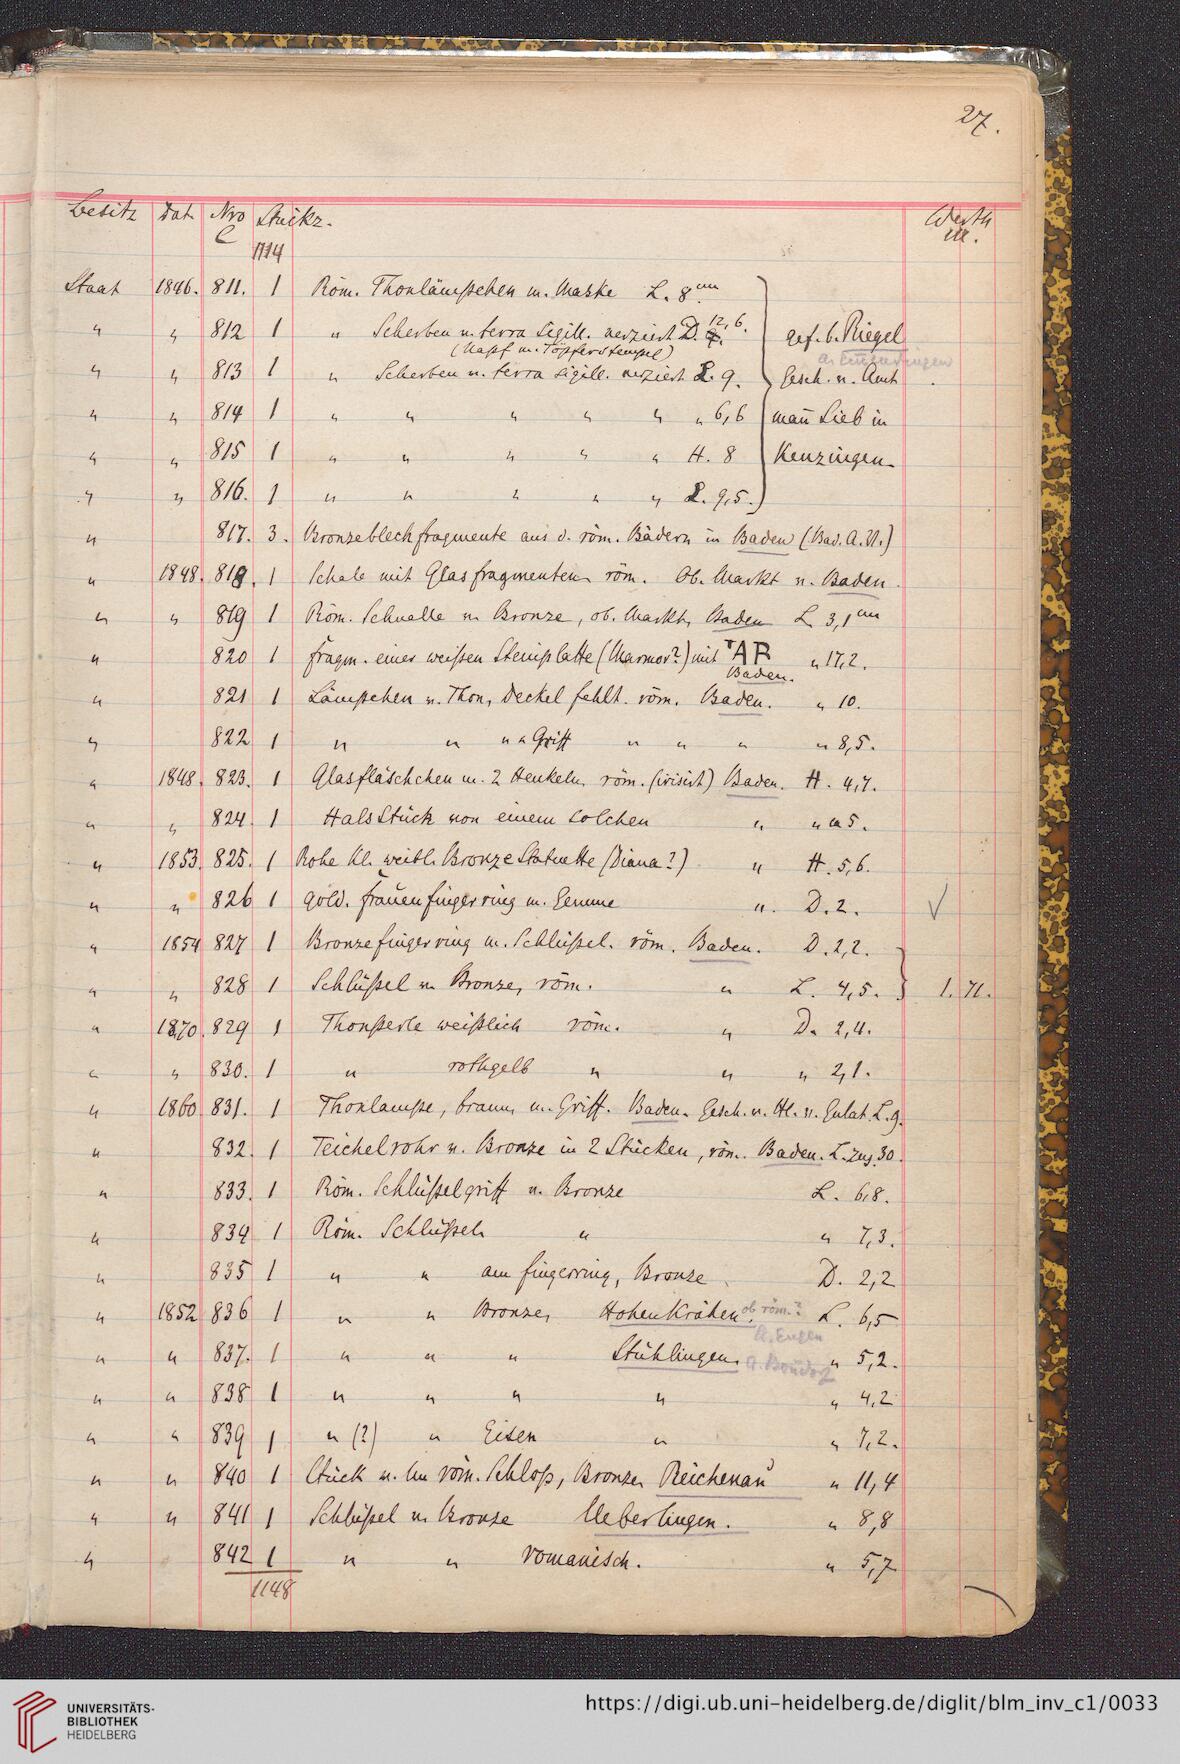 27.
Besitz Dat Nro Stückz. Werth
C M.
1114
Staat 1846. 811. 1 Röm. Thonlämpchen m. Maske L. 8 cm
" " 812 1 " Scherben v. terra sigill. verziert D. 12,6. gef. b. Riegel
(Napf m. Töpferstempel) a. Emmendingen
" " 813 1 " Scherben v. terra sigill. verziert L. 9. Gesch. v. Amt
" " 814 1 " " " " " " 6,6 mañ Lieb in
" " 815 1 " " " " " H. 8 Kenzingen.
" " 816. 1 " " " " " L. 9,5.
" 817. 3. Bronzeblechfragmente aus d. röm. Bädern in Baden (Bad. A.V.)
" 1848. 818. 1 Schale mit Glasfragmenten röm. Ob. Markt v. Baden.
" " 819 1 Röm. Schnalle v. Bronze, ob. Markt, Baden L. 3,1 cm
" 820 1 Fragm. einer weißen Steinplatte (Marmor?) mit AR " 17,2.
Baden.
" 821 1 Lämpchen v. Thon, Deckel fehlt. röm. Baden. " 10.
" 822 1 " " " " Griff " " " " 8,5.
" 1848. 823. 1 Glasfläschchen m. 2 Henkeln, röm. (irisirt) Baden. H. 4,7.
" " 824. 1 Halsstück von einem solchen " " ca 5.
" 1853. 825. 1 Rohe kl. weibl. Bronze Statuette (Diana?) " H. 5,6.
" " 826 1 Gold. Frauenfingerring m. Gemme ". D. 2. ✓
" 1854 827 1 Bronzefingerring m. Schlüßel. röm. Baden. D. 2,2.
" " 828 1 Schlüßel v. Bronze, röm. " L. 4,5. 1. 71.
" 1870. 829 1 Thonperle weißlich röm. " D. 2,4.
" " 830. 1 " rothgelb " " " 2,1.
" 1860 831. 1 Thonlampe, braun, m. Griff. Baden. Gesch. v. L. 9.
" 832. 1 Teichelrohr v. Bronze in 2 Stücken, röm. Baden. L. zus. 30.
" 833. 1 Röm. Schlüßelgriff v. Bronze L. 6,8.
" 834 1 Röm. Schlüßel, " " 7,3.
" 835 1 " " am Fingerring, Bronze D. 2,2
" 1852 836 1 " " Bronze, Hohenkrähen. ob röm.? L. 6,5
A. Engen
" " 837. 1 " " " Stühlingen. A. Bonndorf " 5,2.
" " 838 1 " " " " " 4,2
" " 839 1 " (?) " Eisen " " 7,2.
" " 840 1 Stück v. röm. Schloß, Bronze, Reichenau " 11,4
" " 841 1 Schlüßel v. Bronze Ueberlingen. " 8,8
" 842 1 " " romanisch. " 5,7
1148
UNIVERSITÄTS-
BIBLIOTHEK
HEIDELBERG
https://digi.ub.uni-heidelberg.de/diglit/blm_inv_c1/0033